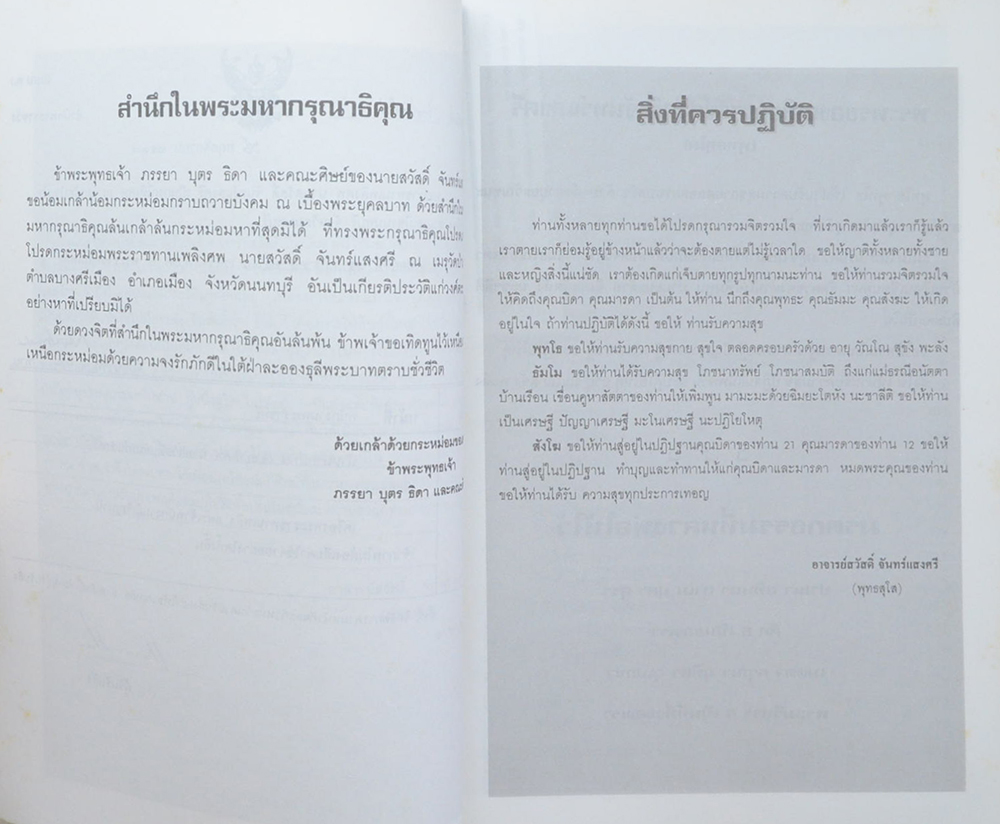 สำนึกในพระมหากรุณาธิคุณ
ข้าพระพุทธเจ้า ภรรยา บุตร ธิดา และคณะศิษย์ของนายสวัสดิ์
ขอน้อมเกล้าน้อมกระหม่อมกราบถวายบังคม ณ เบื้องพระยุคลบาท ด้วยสำนึกใน
มหากรุณาธิคุณล้นเกล้าล้นกระหม่อมหาที่สุดมิได้ ที่ทรงพระกรุณาธิคุณ
โปรดกระหม่อมพระราชทานเพลิงศพ นายสวัสดิ์ จันทร์แสงศรี ณ
ตำบลบางศรีเมือง อำเภอเมือง จังหวัดนนทบุรี อันเป็นเกียรติประวัติแก่วงศ์
อย่างหาที่เปรียบมิได้
ด้วยดวงจิตที่สำนึกในพระมหากรุณาธิคุณอันล้นพ้น ข้าพเจ้าขอเทิดทูนไว้
เหนือกระหม่อมด้วยความจงรักภักดีในใต้ฝ่าละอองธุลีพระบาทตราบชั่วชีวิต
ด้วยเกล้าด้วยกระหม่อมขอ
ข้าพระพุทธเจ้า
ภรรยา บุตร ธิดา และ
สิ่งที่ควรปฏิบัติ
ท่านทั้งหลายทุกท่านขอได้โปรดกรุณารวมจิตรวมใจ ที่เราเกิดมาแล้วเราก็รู้แล้ว
เราตายเราก็ย่อมรู้อยู่ข้างหน้าแล้วว่าจะต้องตายแต่ไม่รู้เวลาใด ขอให้ญาติทั้งหลายทั้งชาย
และหญิงสิ่งนี้แน่ชัด เราต้องเกิดแก่เจ็บตายทุกรูปทุกนามนะท่าน ขอให้ท่านรวมจิตรวมใจ
ให้คิดถึงคุณบิดา คุณมารดา เป็นต้น ให้ท่าน นึกถึงคุณพุทธะ คุณธัมมะ คุณสังฆะ ให้เกิด
อยู่ในใจ ถ้าท่านปฏิบัติได้ดังนี้ ขอให้ ท่านรับความสุข
พุทโธ ขอให้ท่านรับความสุขกาย สุขใจ ตลอดครอบครัวด้วย อายุ วัณโณ สุขัง พะลัง
ธัมโม ขอให้ท่านได้รับความสุข โภชนาทรัพย์ โภชนาสมบัติ ถึงแก่แม่ธรณีอนัตตา
บ้านเรือน เขื่อนคูหาสัตตาของท่านให้เพิ่มพูน มามะมะด้วยฉิมยะโตหัง นะชาลีติ ขอให้ท่าน
เป็นเศรษฐี ปัญญาเศรษฐี มะโนเศรษฐี นะปฏิโยโหตุ
สังโฆ ขอให้ท่านสู่อยู่ในปฏิปฐานคุณบิดาของท่าน 21 คุณมารดาของท่าน 12 ขอให้
ท่านสู่อยู่ในปฏิปฐาน ทำบุญและทำทานให้แก่คุณบิดาและมารดา หมดพระคุณของท่าน
ขอให้ท่านได้รับ ความสุขทุกประการเทอญ
อาจารย์สวัสดิ์ จันทร์แสงศรี
(พุทธสุโส)